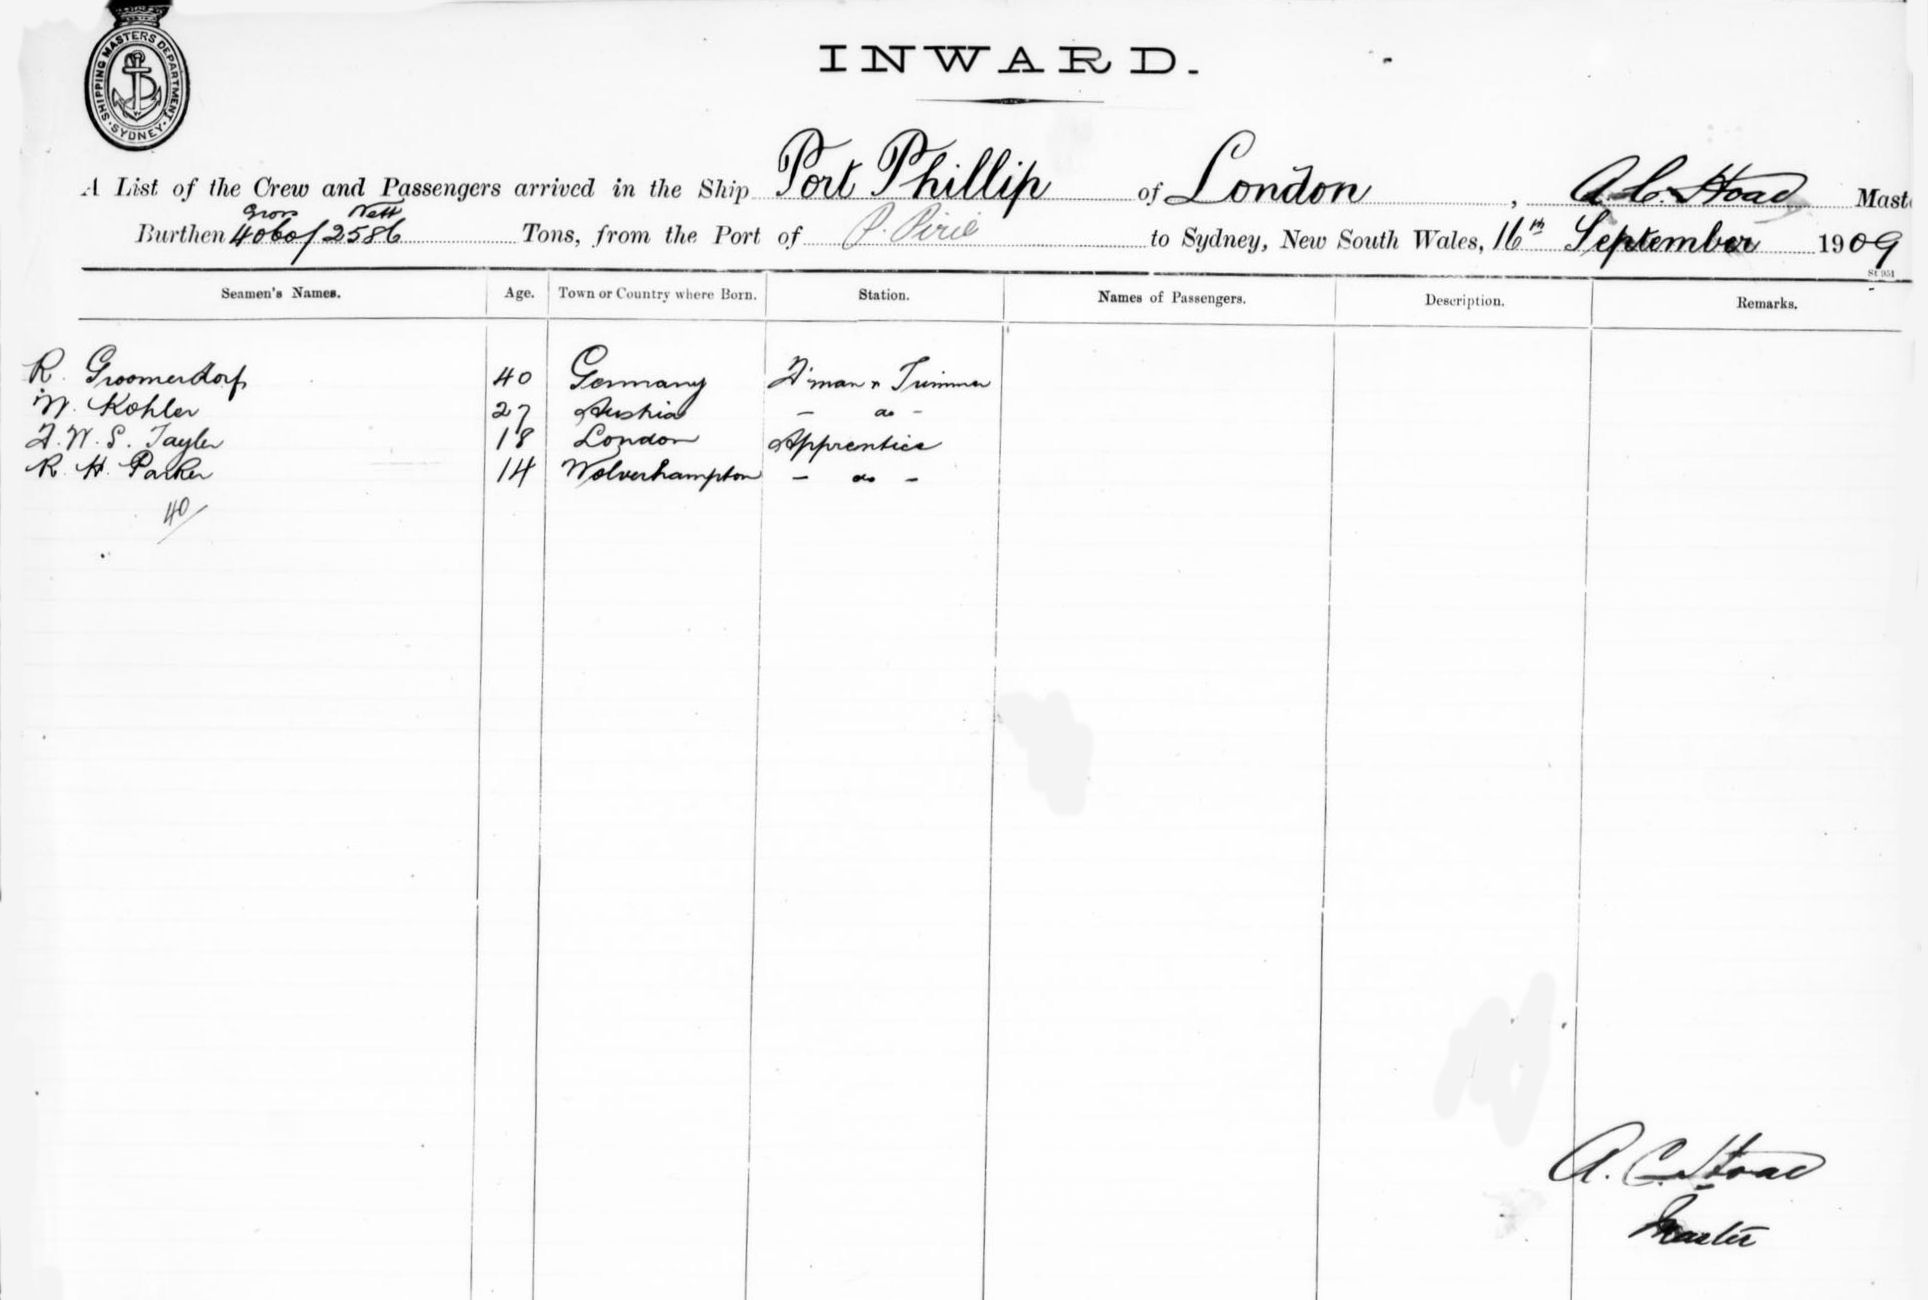 SHIPPING MASTERS DEPARTMENT · SYDNEY ·
INWARD.
A List of the Crew and Passengers arrived in the Ship Port Phillip of London, A. C. Hoad Maste
Gross Nett
Burthen 4060/2586 Tons, from the Port of P. Pirie to Sydney, New South Wales, 16th September 1909
St 951
Seamen's Names. Age. Town or Country where Born. Station. Names of Passengers. Description. Remarks.
R. Groomerdorf 40 Germany F'man & Trimmer
W. Kohler 27 Austria - do -
F. W. S. Tayler 18 London Apprentice
R. H. Parker 14 Wolverhampton - do -
40/
A. C. Hoad
Master